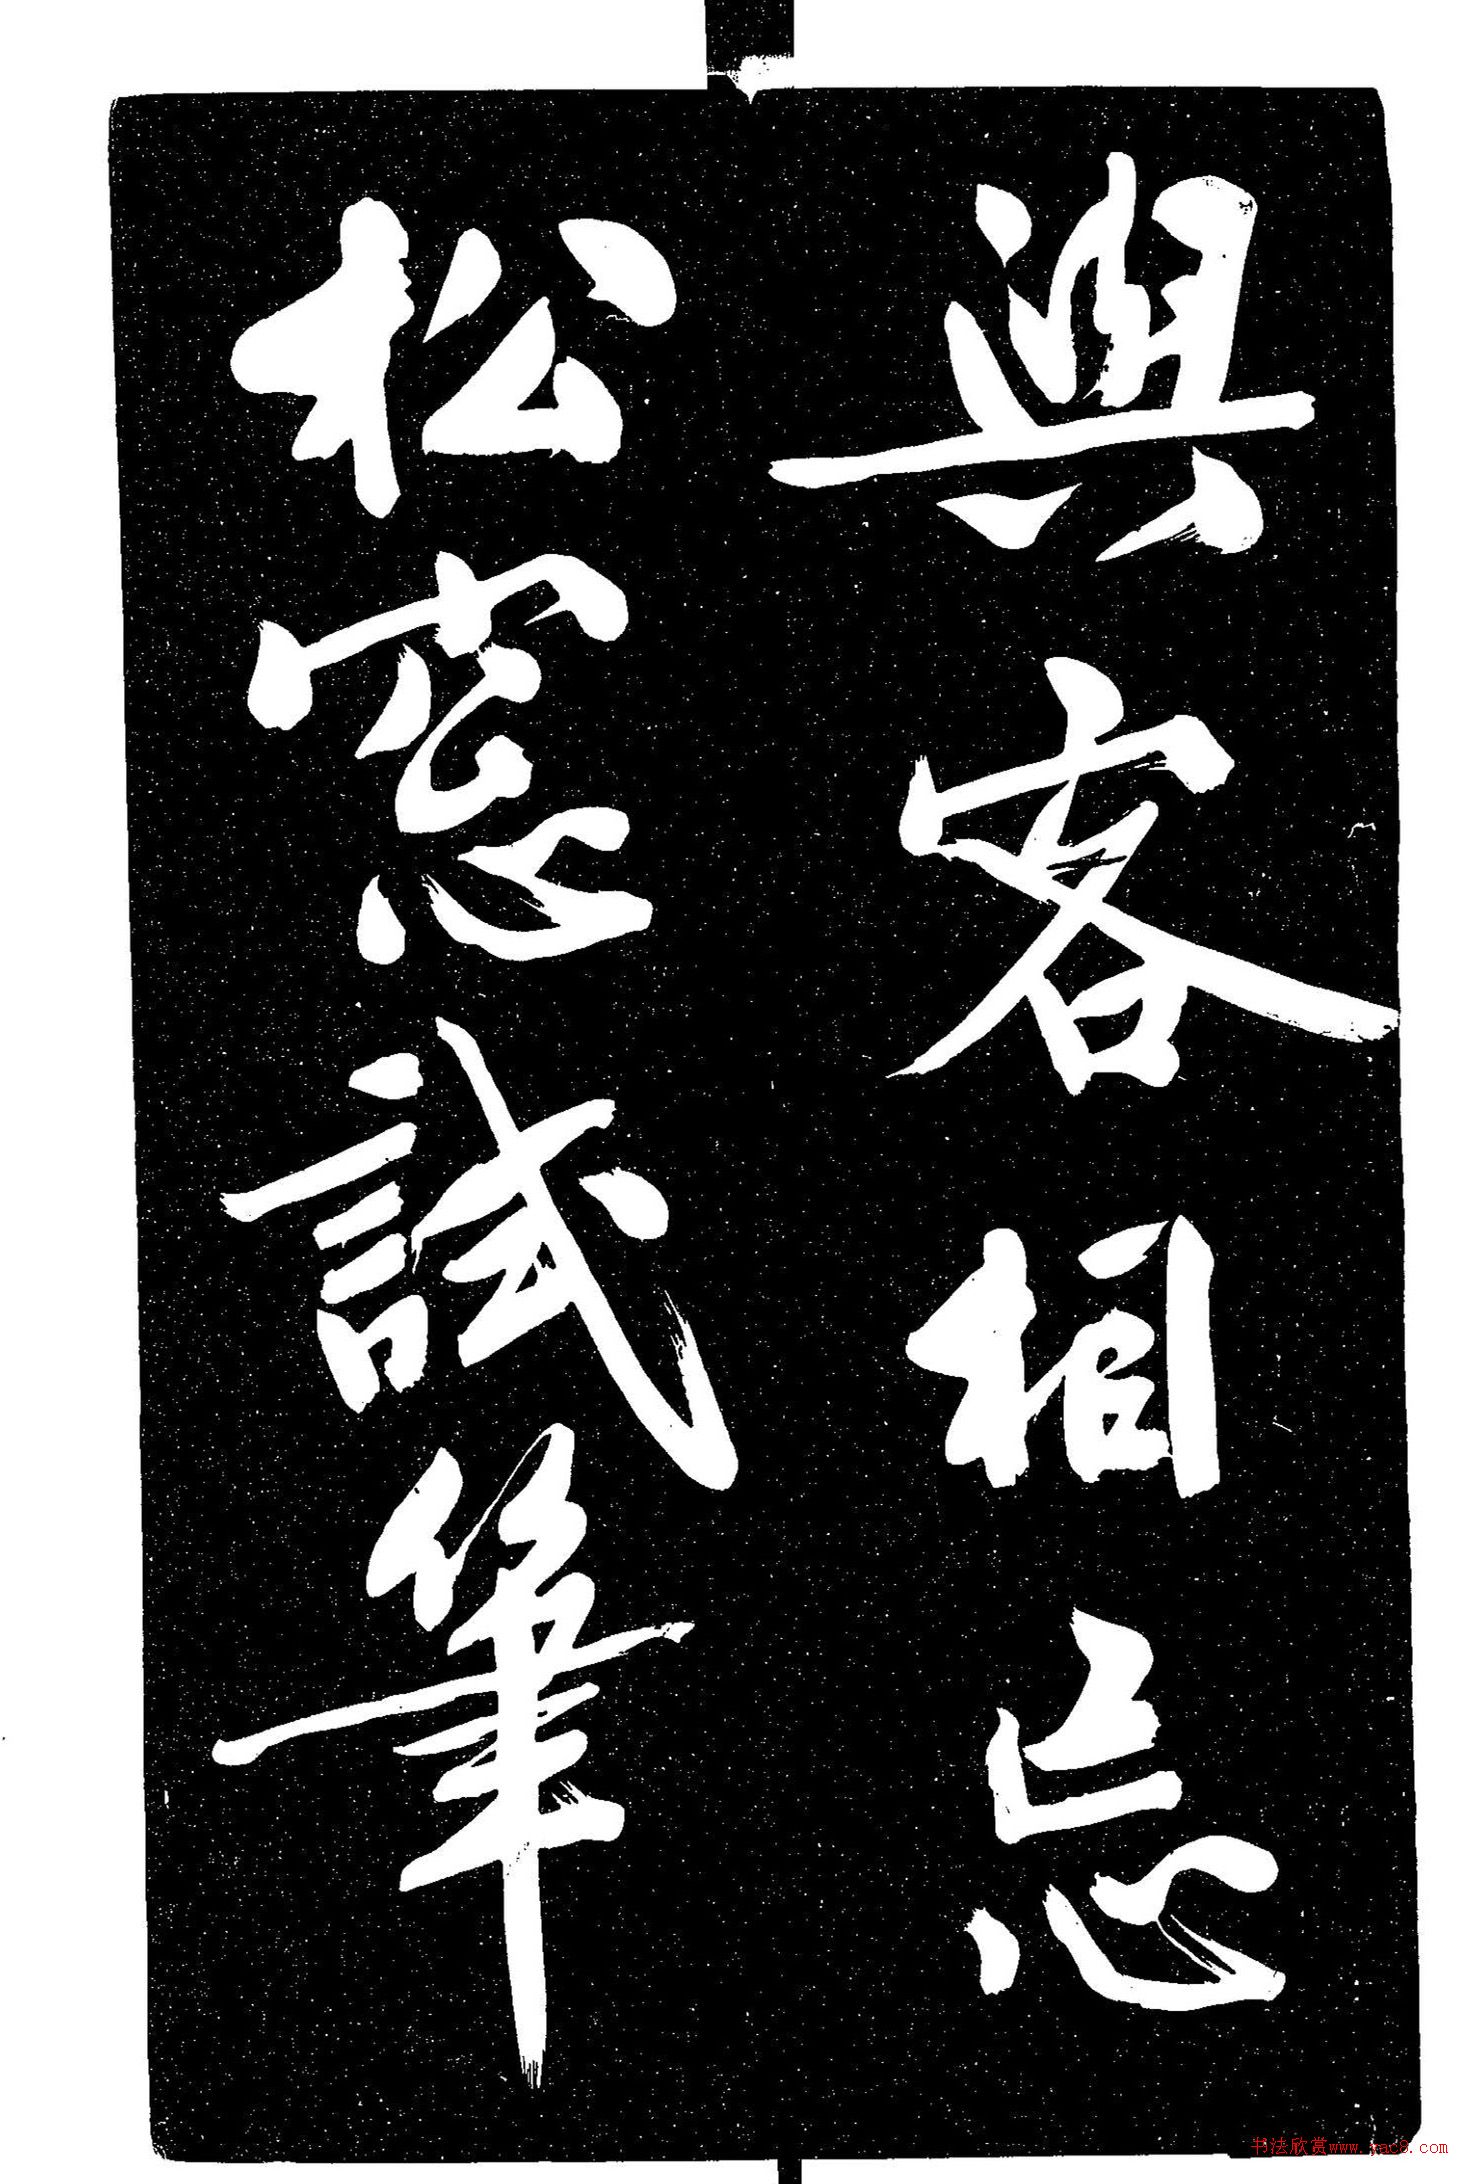 與客相忘
松窓試筆
书法欣赏www.yac8.com